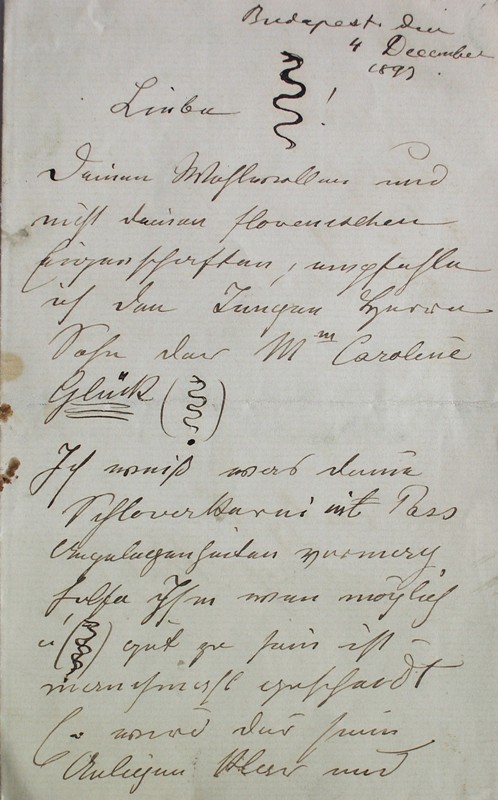 Budapest den
4 December
1893.
Liebe !
Deinem Wohlwollen und
nicht deinen slovenischen
Eigenschaften, empfehle
ich den Jungen Herrn
Sohn der Mm Caroline
Glück
Ich weiß was deine
in Pass
Angelegenheiten vermag
helfe Ihm wen möglich
gut zu sein ist
manchmahl gescheidt
wird dir sein
Anliegen klar und